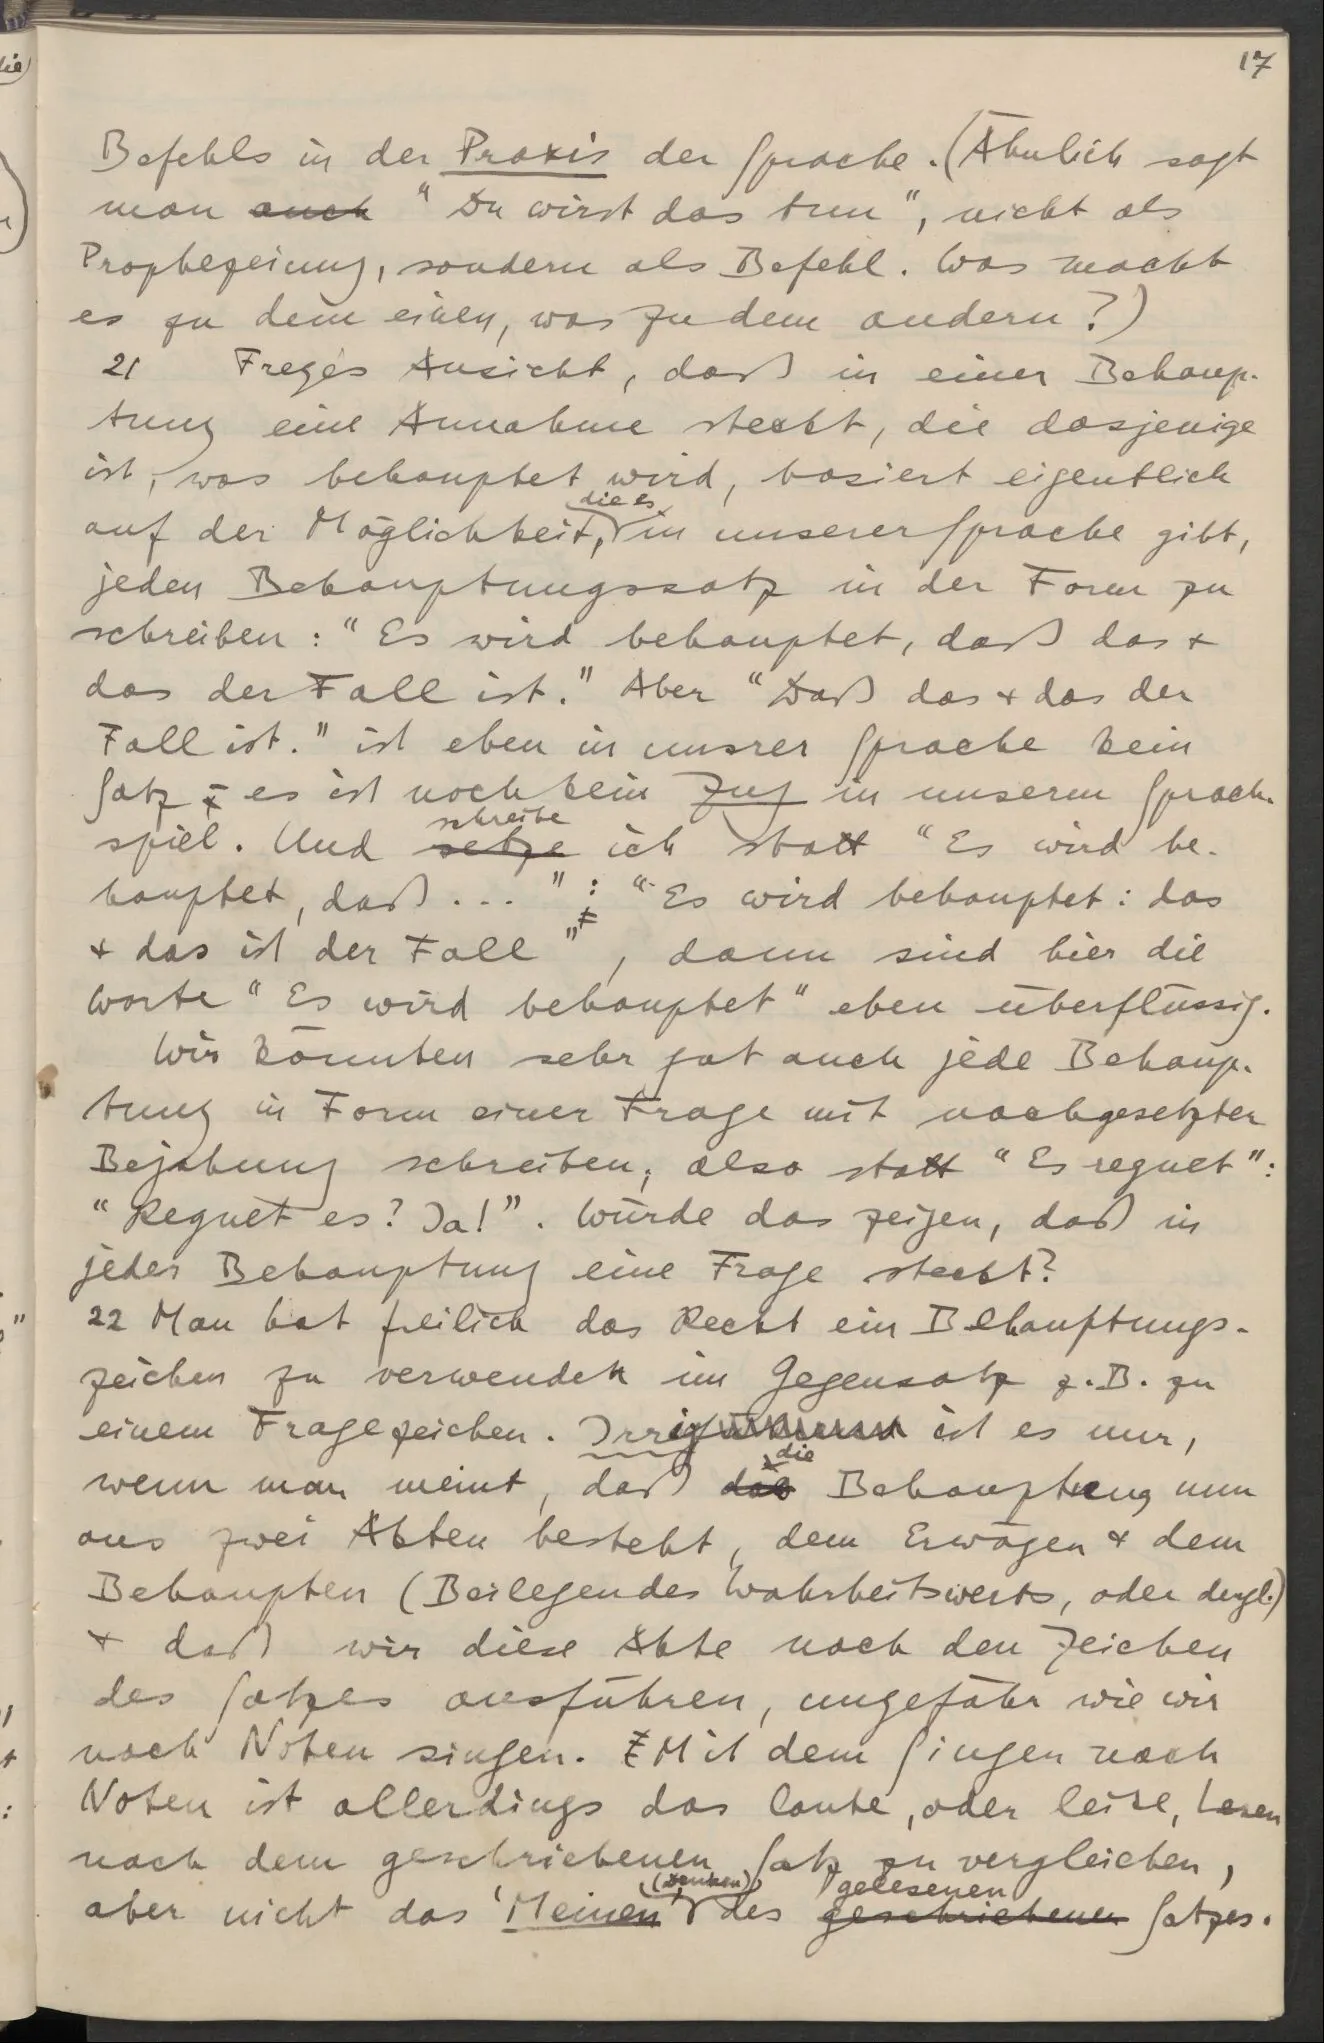 17
Befehls in der Praxis der Sprache. (Ähnlich sagt
man auch "Du wirst das tun", nicht als
Prophezeiung, sondern als Befehl. Was macht
es zu dem einen, was zu dem andern?)
21 Freges Ansicht, daß in einer Behaup-
tung eine Annahme steckt, die dasjenige
ist, was behauptet wird, basiert eigentlich
die es
auf der Möglichkeit, in unserer Sprache gibt,
jeden Behauptungssatz in der Form zu
schreiben: "Es wird behauptet, daß das +
das der Fall ist." Aber "Daß das + das der
Fall ist." ist eben in unsrer Sprache kein
Satz – es ist noch kein Zug in unserm Sprach-
schreibe
spiel. Und setze ich statt "Es wird be-
hauptet, daß ... " : "Es wird behauptet: das
+ das ist der Fall", dann sind hier die
Worte "Es wird behauptet" eben überflüssig.
Wir könnten sehr gut auch jede Behaup-
tung in Form einer Frage mit nachgesetzter
Bejahung schreiben; also statt "Es regnet":
"Regnet es? Ja!". Würde das zeigen, daß in
jeder Behauptung eine Frage steckt?
22 Man hat freilich das Recht ein Behauptungs-
zeichen zu verwenden im Gegensatz z.B. zu
einem Fragezeichen. Irrig ist es nur,
die
wenn man meint, daß das Behauptung nun
aus zwei Akten besteht, dem Erwägen + dem
Behaupten (Beilegen des Wahrheitswerts, oder dergl.)
+ daß wir diese Akte nach den Zeichen
des Satzes ausführen, ungefähr wie wir
nach Noten singen. Mit dem Singen nach
Noten ist allerdings das laute, oder leise, Lesen
nach dem geschriebenen Satz zu vergleichen,
(Denken) gelesenen
aber nicht das 'Meinen' des geschriebenen Satzes.